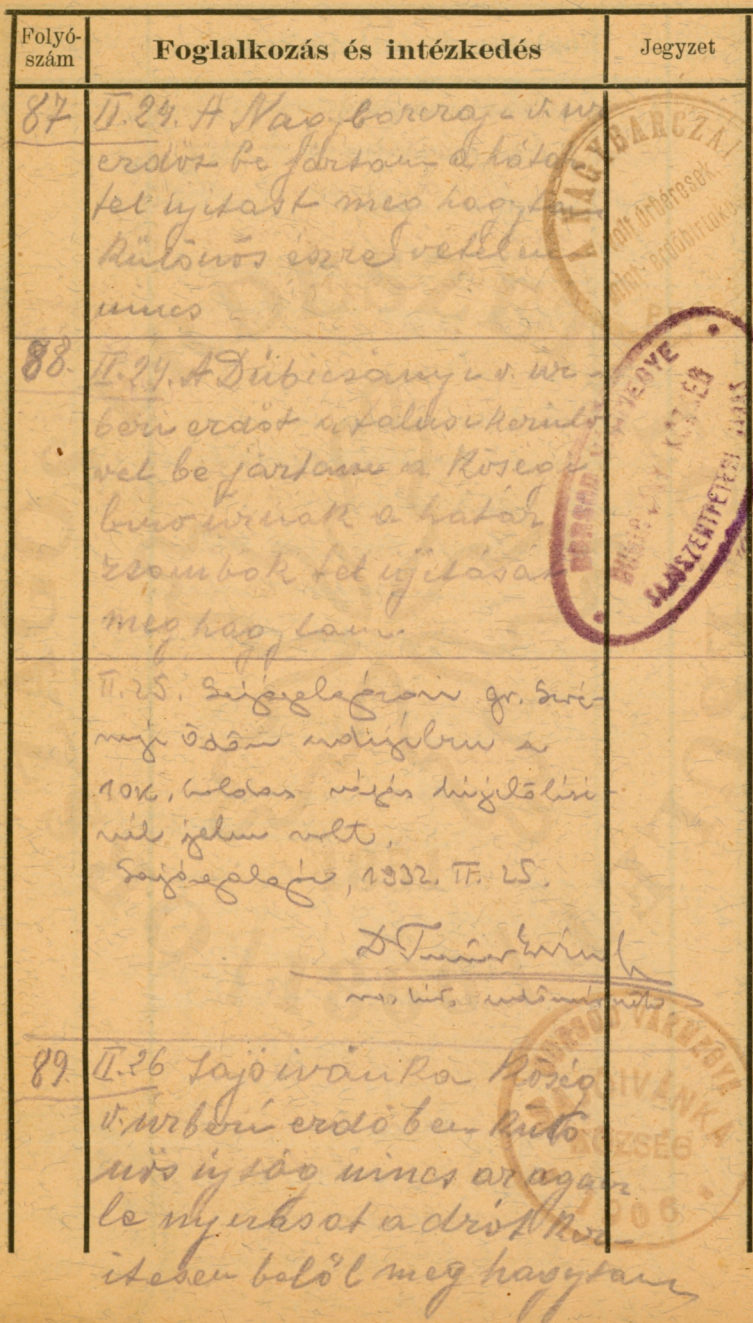 Folyó-
szám
Foglalkozás és intézkedés
Jegyzet
87 II.24. A Nagybarczai v. ur
erdöt be jártam a hátár
fel ujitást meg hagytam
Különös észre vételem
nincs
A NAGYBARCZAI
volt úrbéresek
mint erdőbirtokos
88. II.24. A Dubicsányi v. ur-
beri erdöt a falusi kerülö
vel be jártam a Község
biro urnak a hatar
zsombok fel ujitását
meg hagytam.
BORSOD VÁRMEGYE
KÖZSÉG
SAJÓSZENTPÉTERI JÁRÁS
II. 25. gr. Seré-
nyi Ödön a
10 k. holdas vágás kijelölésé-
nél jelen volt.
1932. II. 25.
89. II.26 Sajóivánka Község
v. urberi erdö ben külö
nös ujság nincs az agan
le nyerését a drót ker
itesen belöl meg hagytam
BORSOD VÁRMEGYE
SAJÓIVÁNKA
KÖZSÉG
1906